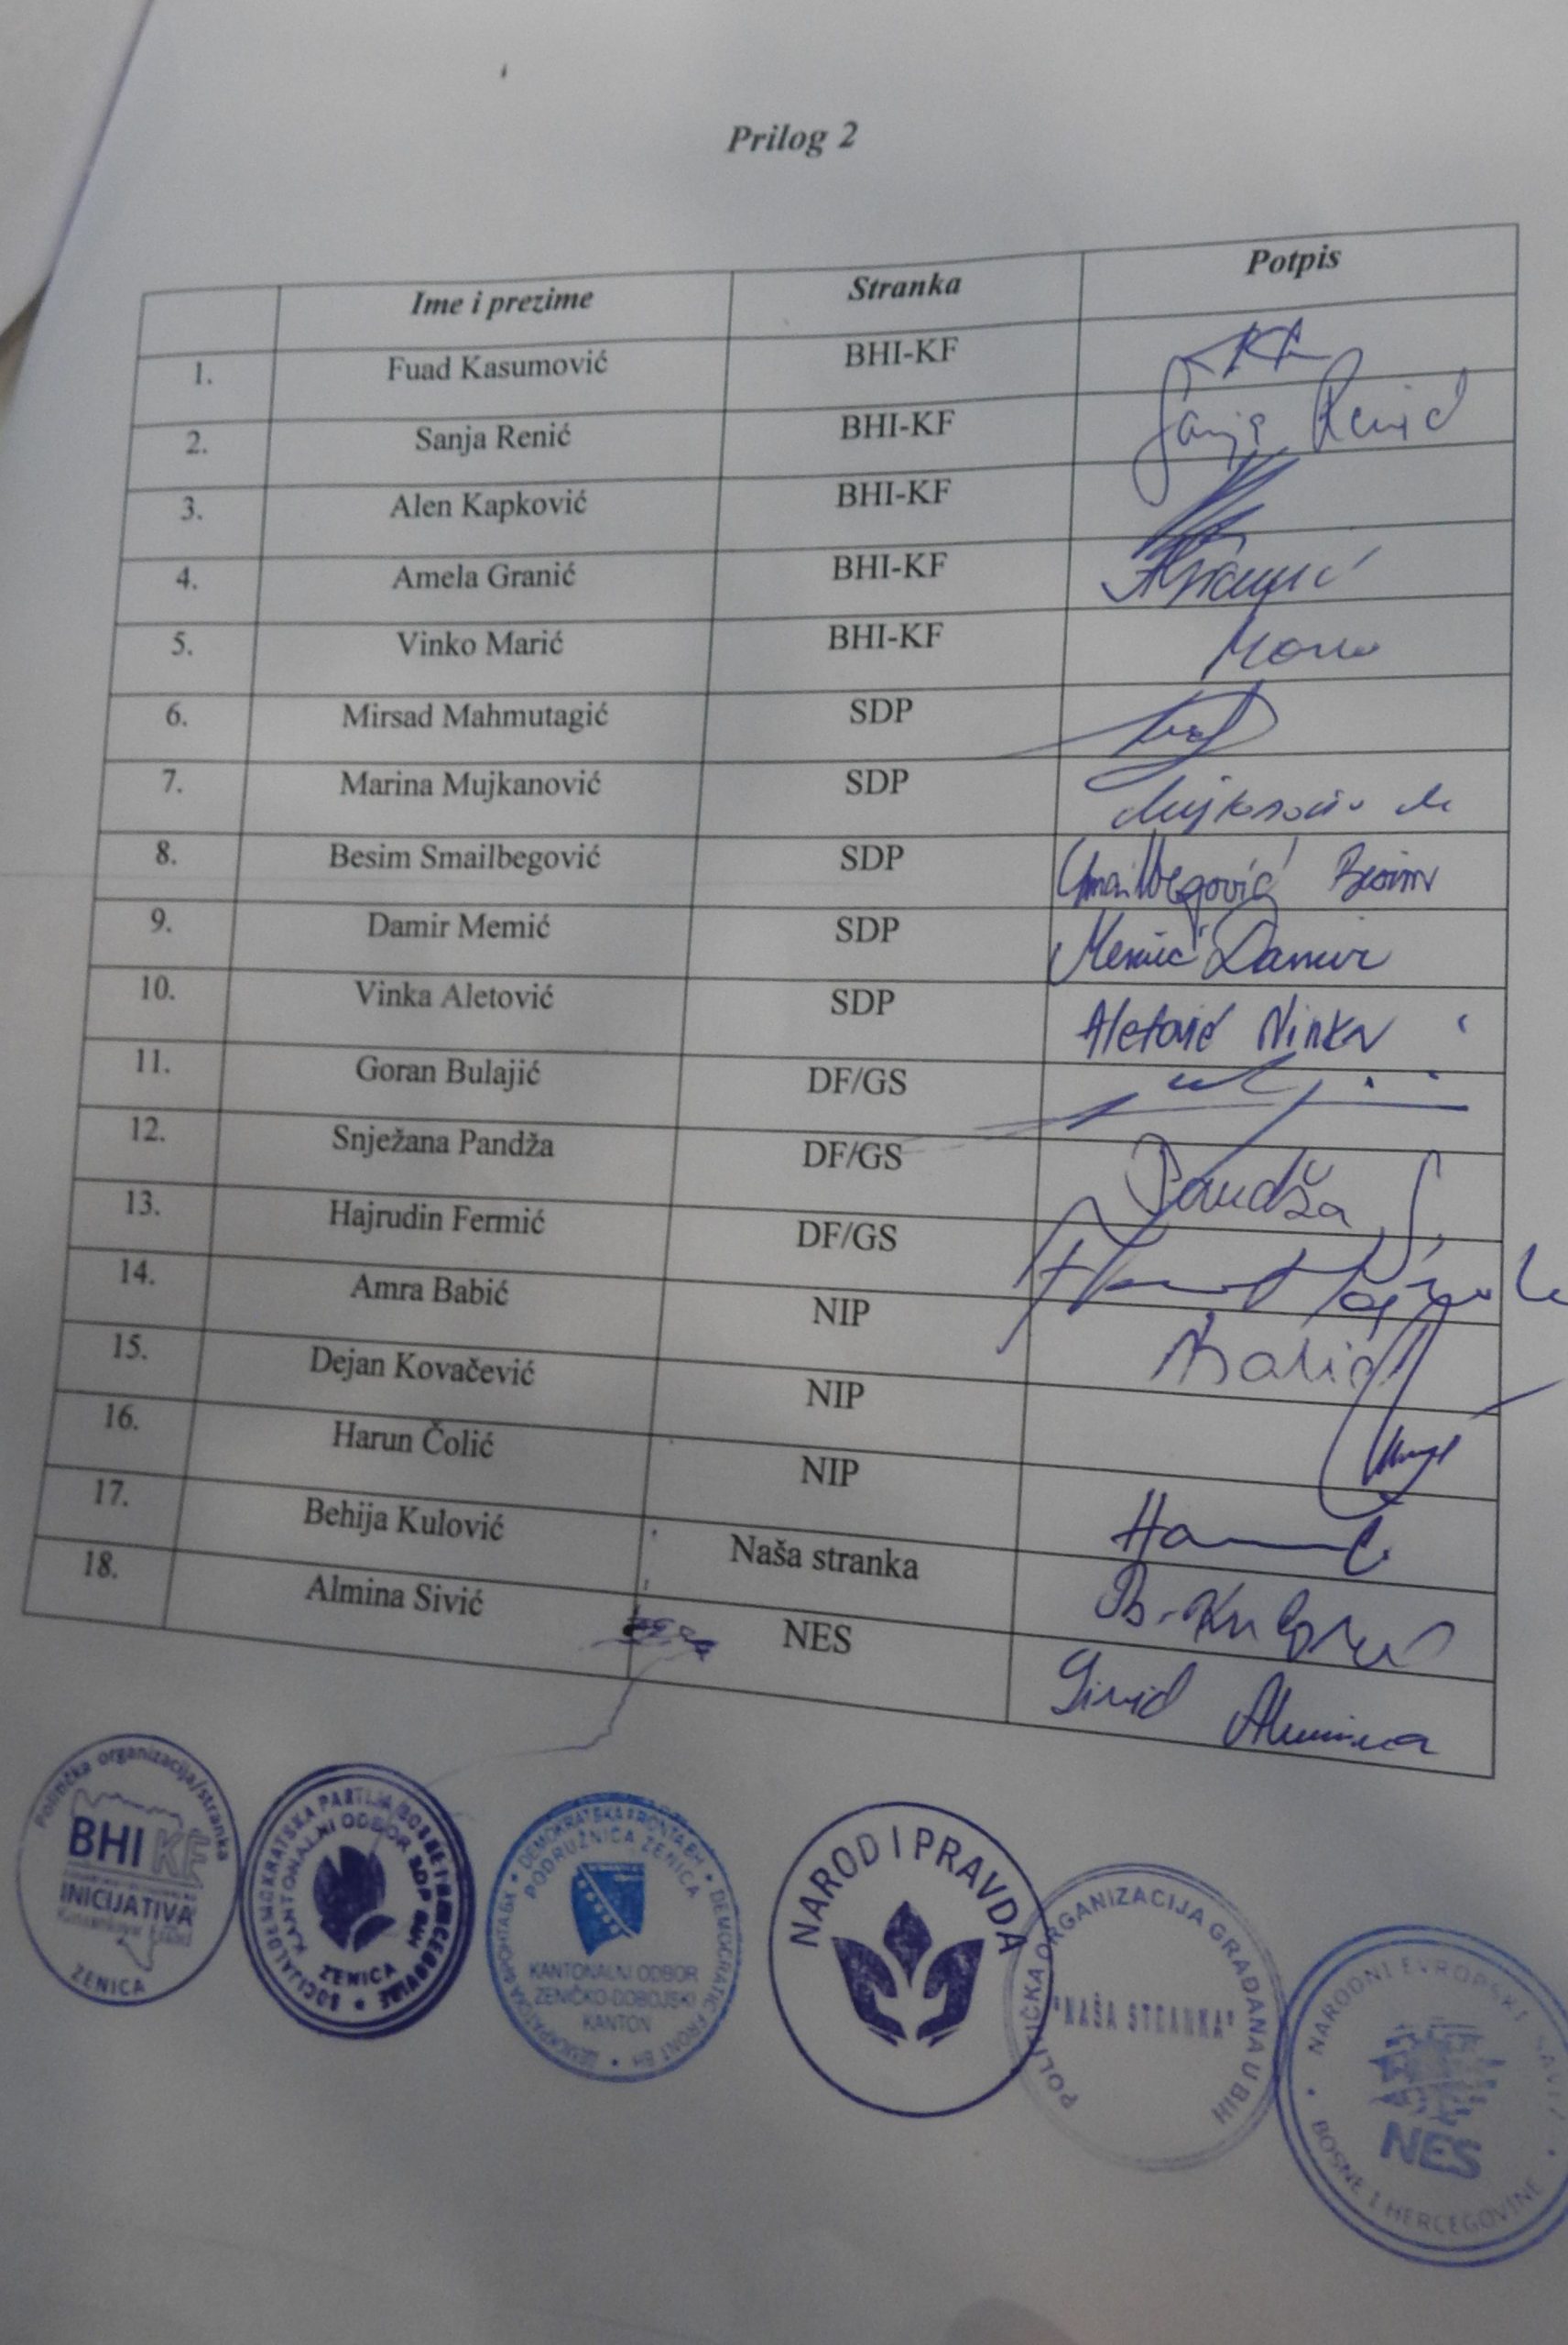 Prilog 2
Ime i prezime Stranka Potpis
1. Fuad Kasumović BHI-KF
2. Sanja Renić BHI-KF Sanja Renić
3. Alen Kapković BHI-KF
4. Amela Granić BHI-KF
5. Vinko Marić BHI-KF
6. Mirsad Mahmutagić SDP
7. Marina Mujkanović SDP
8. Besim Smailbegović SDP Smailbegović Besim
9. Damir Memić SDP Memić Damir
10. Vinka Aletović SDP
11. Goran Bulajić DF/GS
12. Snježana Pandža DF/GS Pandža S.
13. Hajrudin Fermić DF/GS
14. Amra Babić NIP
15. Dejan Kovačević NIP
16. Harun Čolić NIP
17. Behija Kulović Naša stranka
18. Almina Sivić NES Sivić Almina
Politička organizacija/stranka
BHI KF
INICIJATIVA
ZENICA
SOCIJALDEMOKRATSKA PARTIJA BOSNE I HERCEGOVINE
KANTONALNI ODBOR SDP BIH
ZENICA
DEMOKRATSKA FRONTA BH • DEMOCRATIC FRONT BH
PODRUŽNICA ZENICA
KANTONALNI ODBOR
ZENIČKO-DOBOJSKI
KANTON
NAROD I PRAVDA
POLITIČKA ORGANIZACIJA GRAĐANA U BIH
"NAŠA STRANKA"
NARODNI EVROPSKI SAVEZ
NES
BOSNE I HERCEGOVINE